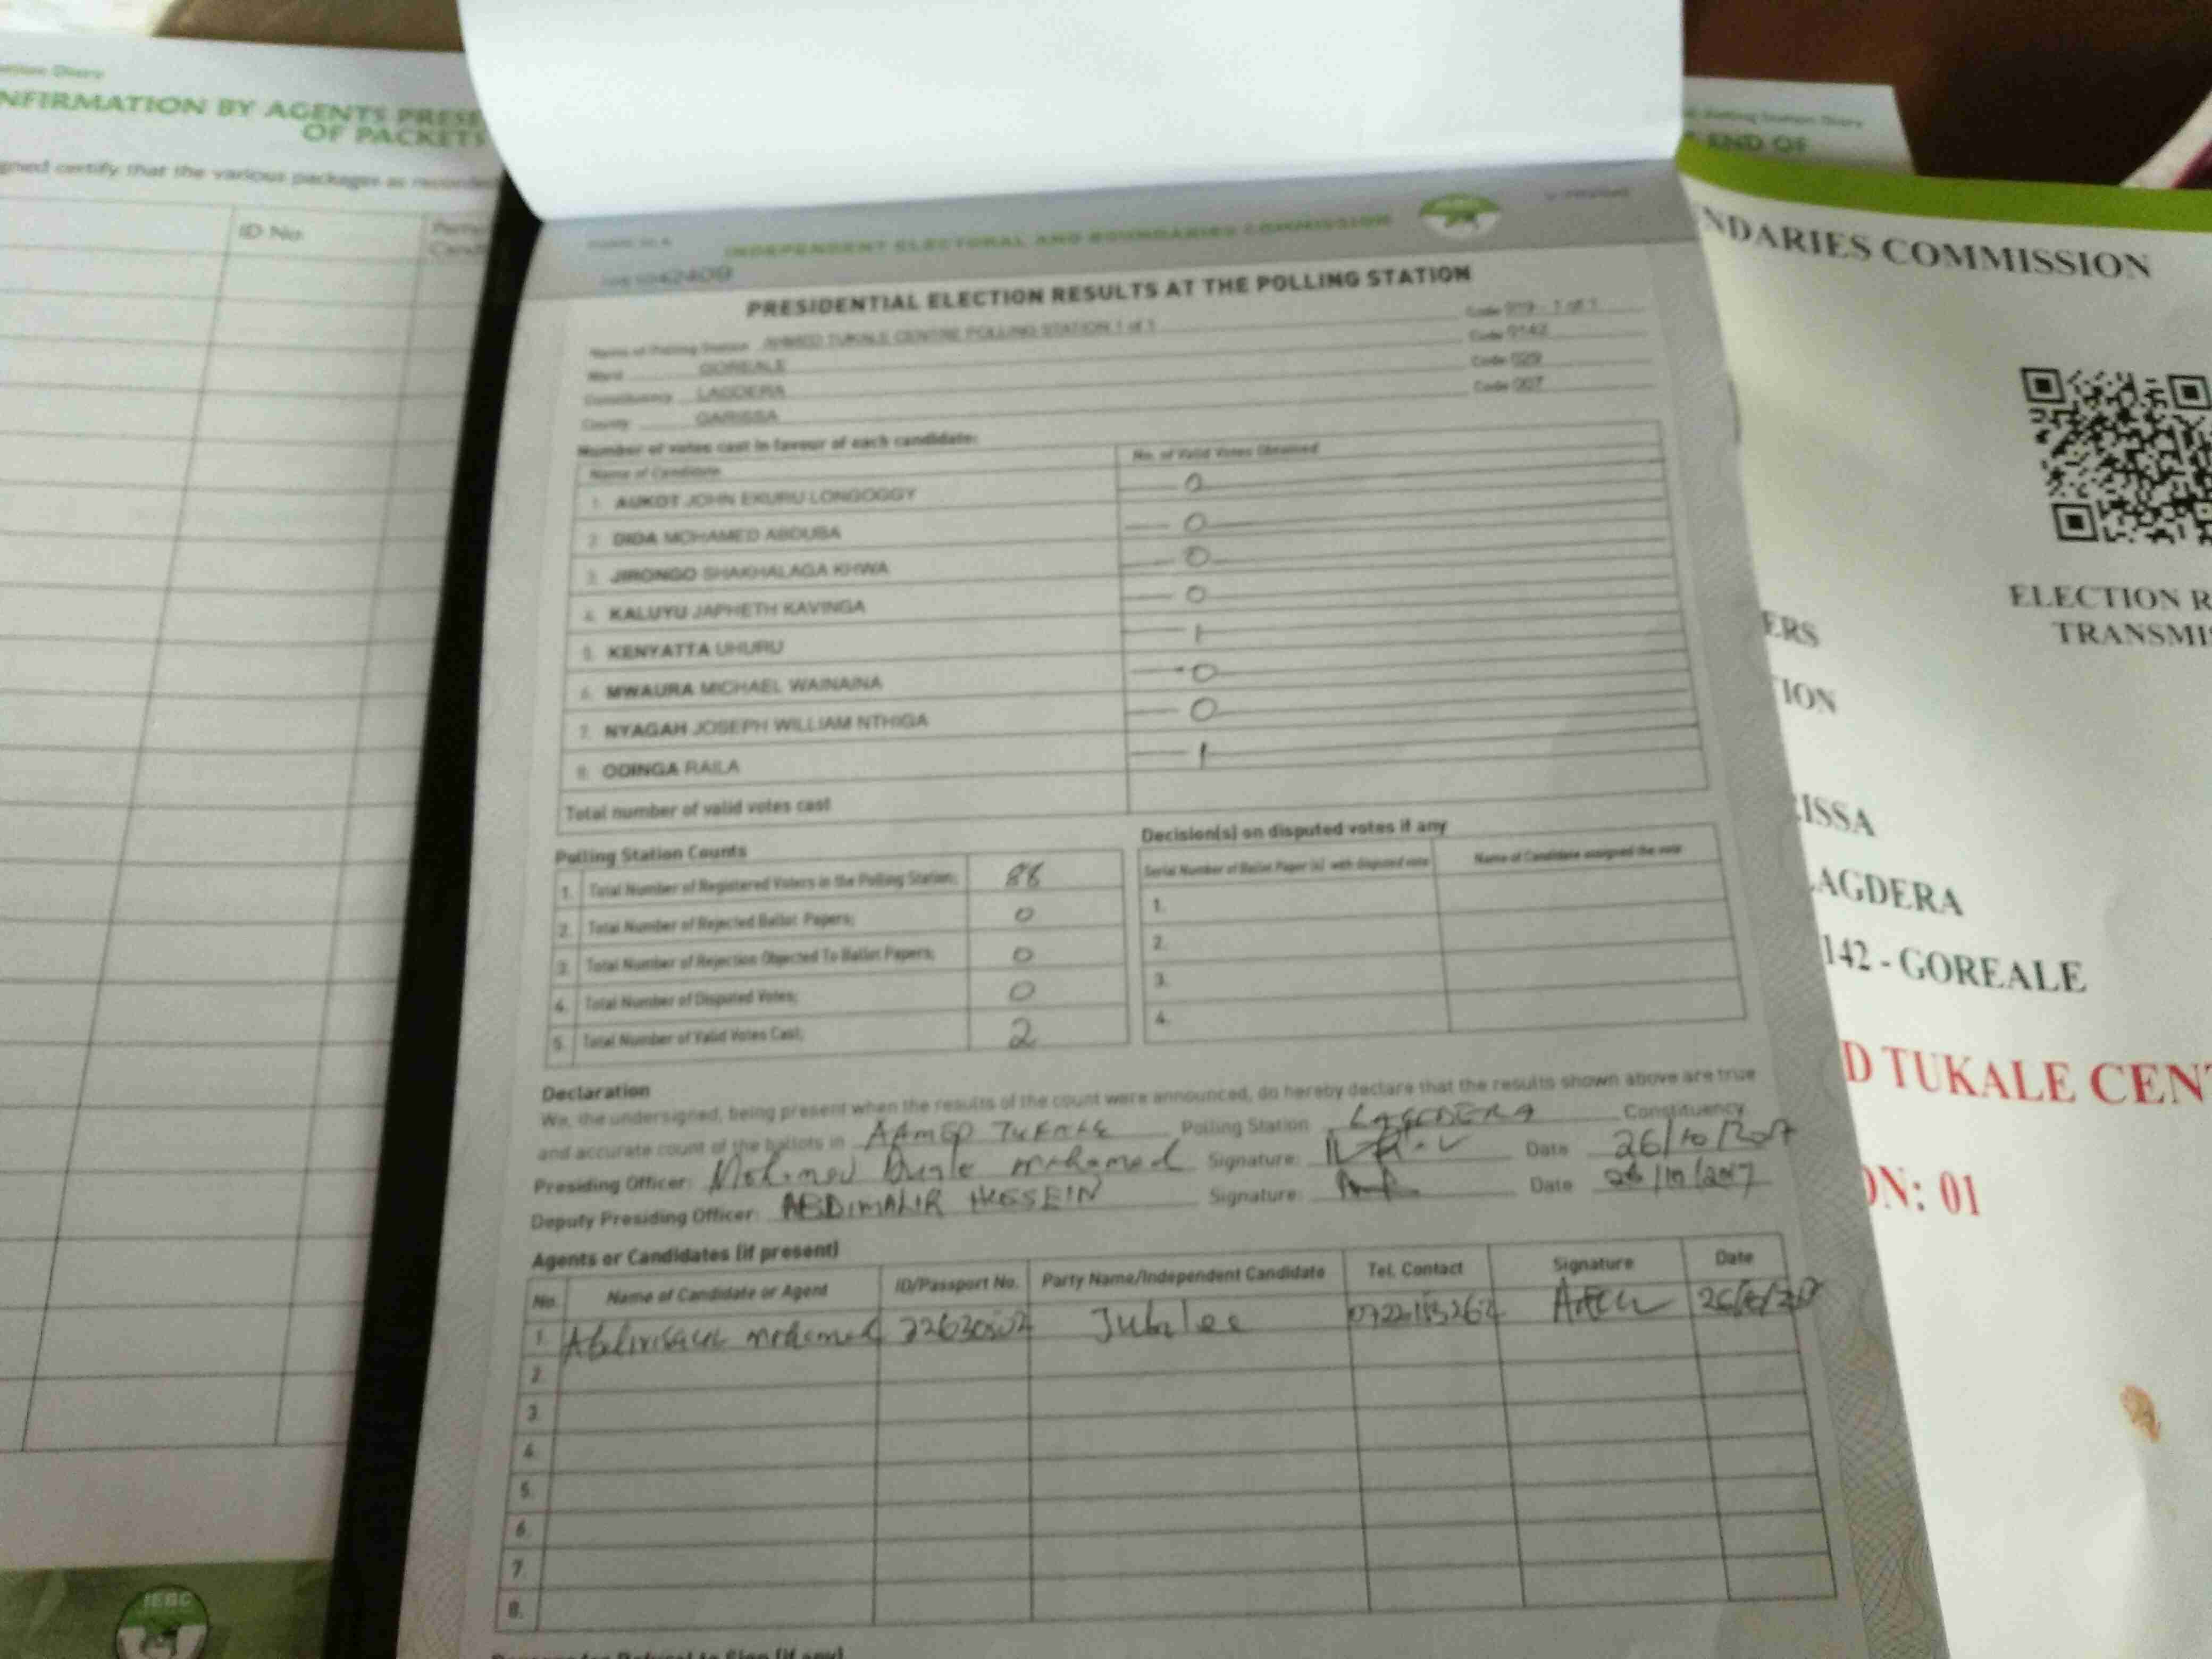 NFIRMATION BY AGENTS PRESE
OF PACKETS
gned certify that the various packages as recorded
ID No.
IEBC
INDEPENDENT ELECTORAL AND BOUNDARIES COMMISSION
PRESIDENTIAL ELECTION RESULTS AT THE POLLING STATION
Name of Polling Station AHMED TUKALE CENTRE POLLING STATION 1 of 1 Code 019 - 1 of 1
Ward GOREALE Code 0142
Constituency LAGDERA Code 029
County GARISSA Code 007
Number of votes cast in favour of each candidate:
Name of Candidate No. of Valid Votes Obtained
1. AUKOT JOHN EKURU LONGOGGY 0
2. DIDA MOHAMED ABDUBA 0
3. JIRONGO SHAKHALAGA KHWA 0
4. KALUYU JAPHETH KAVINGA 0
5. KENYATTA UHURU 1
6. MWAURA MICHAEL WAINAINA 0
7. NYAGAH JOSEPH WILLIAM NTHIGA 0
8. ODINGA RAILA 1
Total number of valid votes cast
Polling Station Counts
1. Total Number of Registered Voters in the Polling Station;
2. Total Number of Rejected Ballot Papers; 0
3. Total Number of Rejection Objected To Ballot Papers; 0
4. Total Number of Disputed Votes; 0
5. Total Number of Valid Votes Cast; 2
Decision(s) on disputed votes if any
Serial Number of Ballot Paper (s) with disputed vote Name of Candidate assigned the vote
1.
2.
3.
4.
Declaration
We, the undersigned, being present when the results of the count were announced, do hereby declare that the results shown above are true
and accurate count of the ballots in Polling Station Constituency
Presiding Officer: Signature: Date 26/10/2017
Deputy Presiding Officer: HUSSEIN Signature: Date 26/10/2017
Agents or Candidates (if present)
No. Name of Candidate or Agent ID/Passport No. Party Name/Independent Candidate Tel. Contact Signature Date
1. Jubilee
2.
3.
4.
5.
6.
7.
8.
AND OF
NDARIES COMMISSION
ELECTION R
TRANSMI
ERS
TION
RISSA
AGDERA
142 - GOREALE
D TUKALE CENT
ON: 01